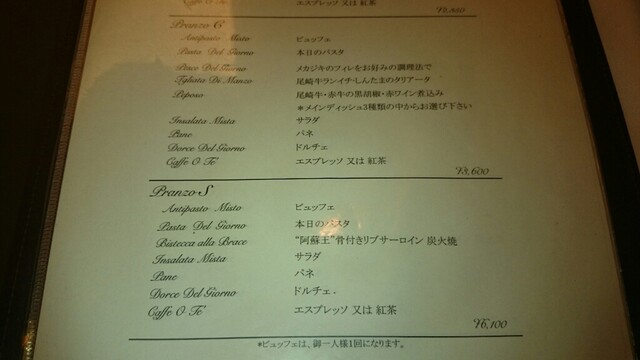 Caffe O Te' エスプレッソ 又は 紅茶
Pranzo-C
Antipasto Misto ビュッフェ
Pasta Del Giorno 本日のパスタ
Pesce Del Giorno メカジキのフィレをお好みの調理法で
Tgliata Di Manzo 尾崎牛ランイチ・しんたまのタリアータ
Peposo 尾崎牛・赤牛の黒胡椒・赤ワイン煮込み
＊メインディッシュ3種類の中からお選び下さい
Insalata Mista サラダ
Pane パネ
Dorce Del Giorno ドルチェ
Caffe O Te' エスプレッソ 又は 紅茶
¥3,600
Pranzo-S
Antipasto Misto ビュッフェ
Pasta Del Giorno 本日のパスタ
Bistecca alla Brace “阿蘇王”骨付きリブサーロイン 炭火焼
Insalata Mista サラダ
Pane パネ
Dorce Del Giorno ドルチェ
Caffe O Te' エスプレッソ 又は 紅茶
¥6,100
*ビュッフェは、御一人様1回になります。